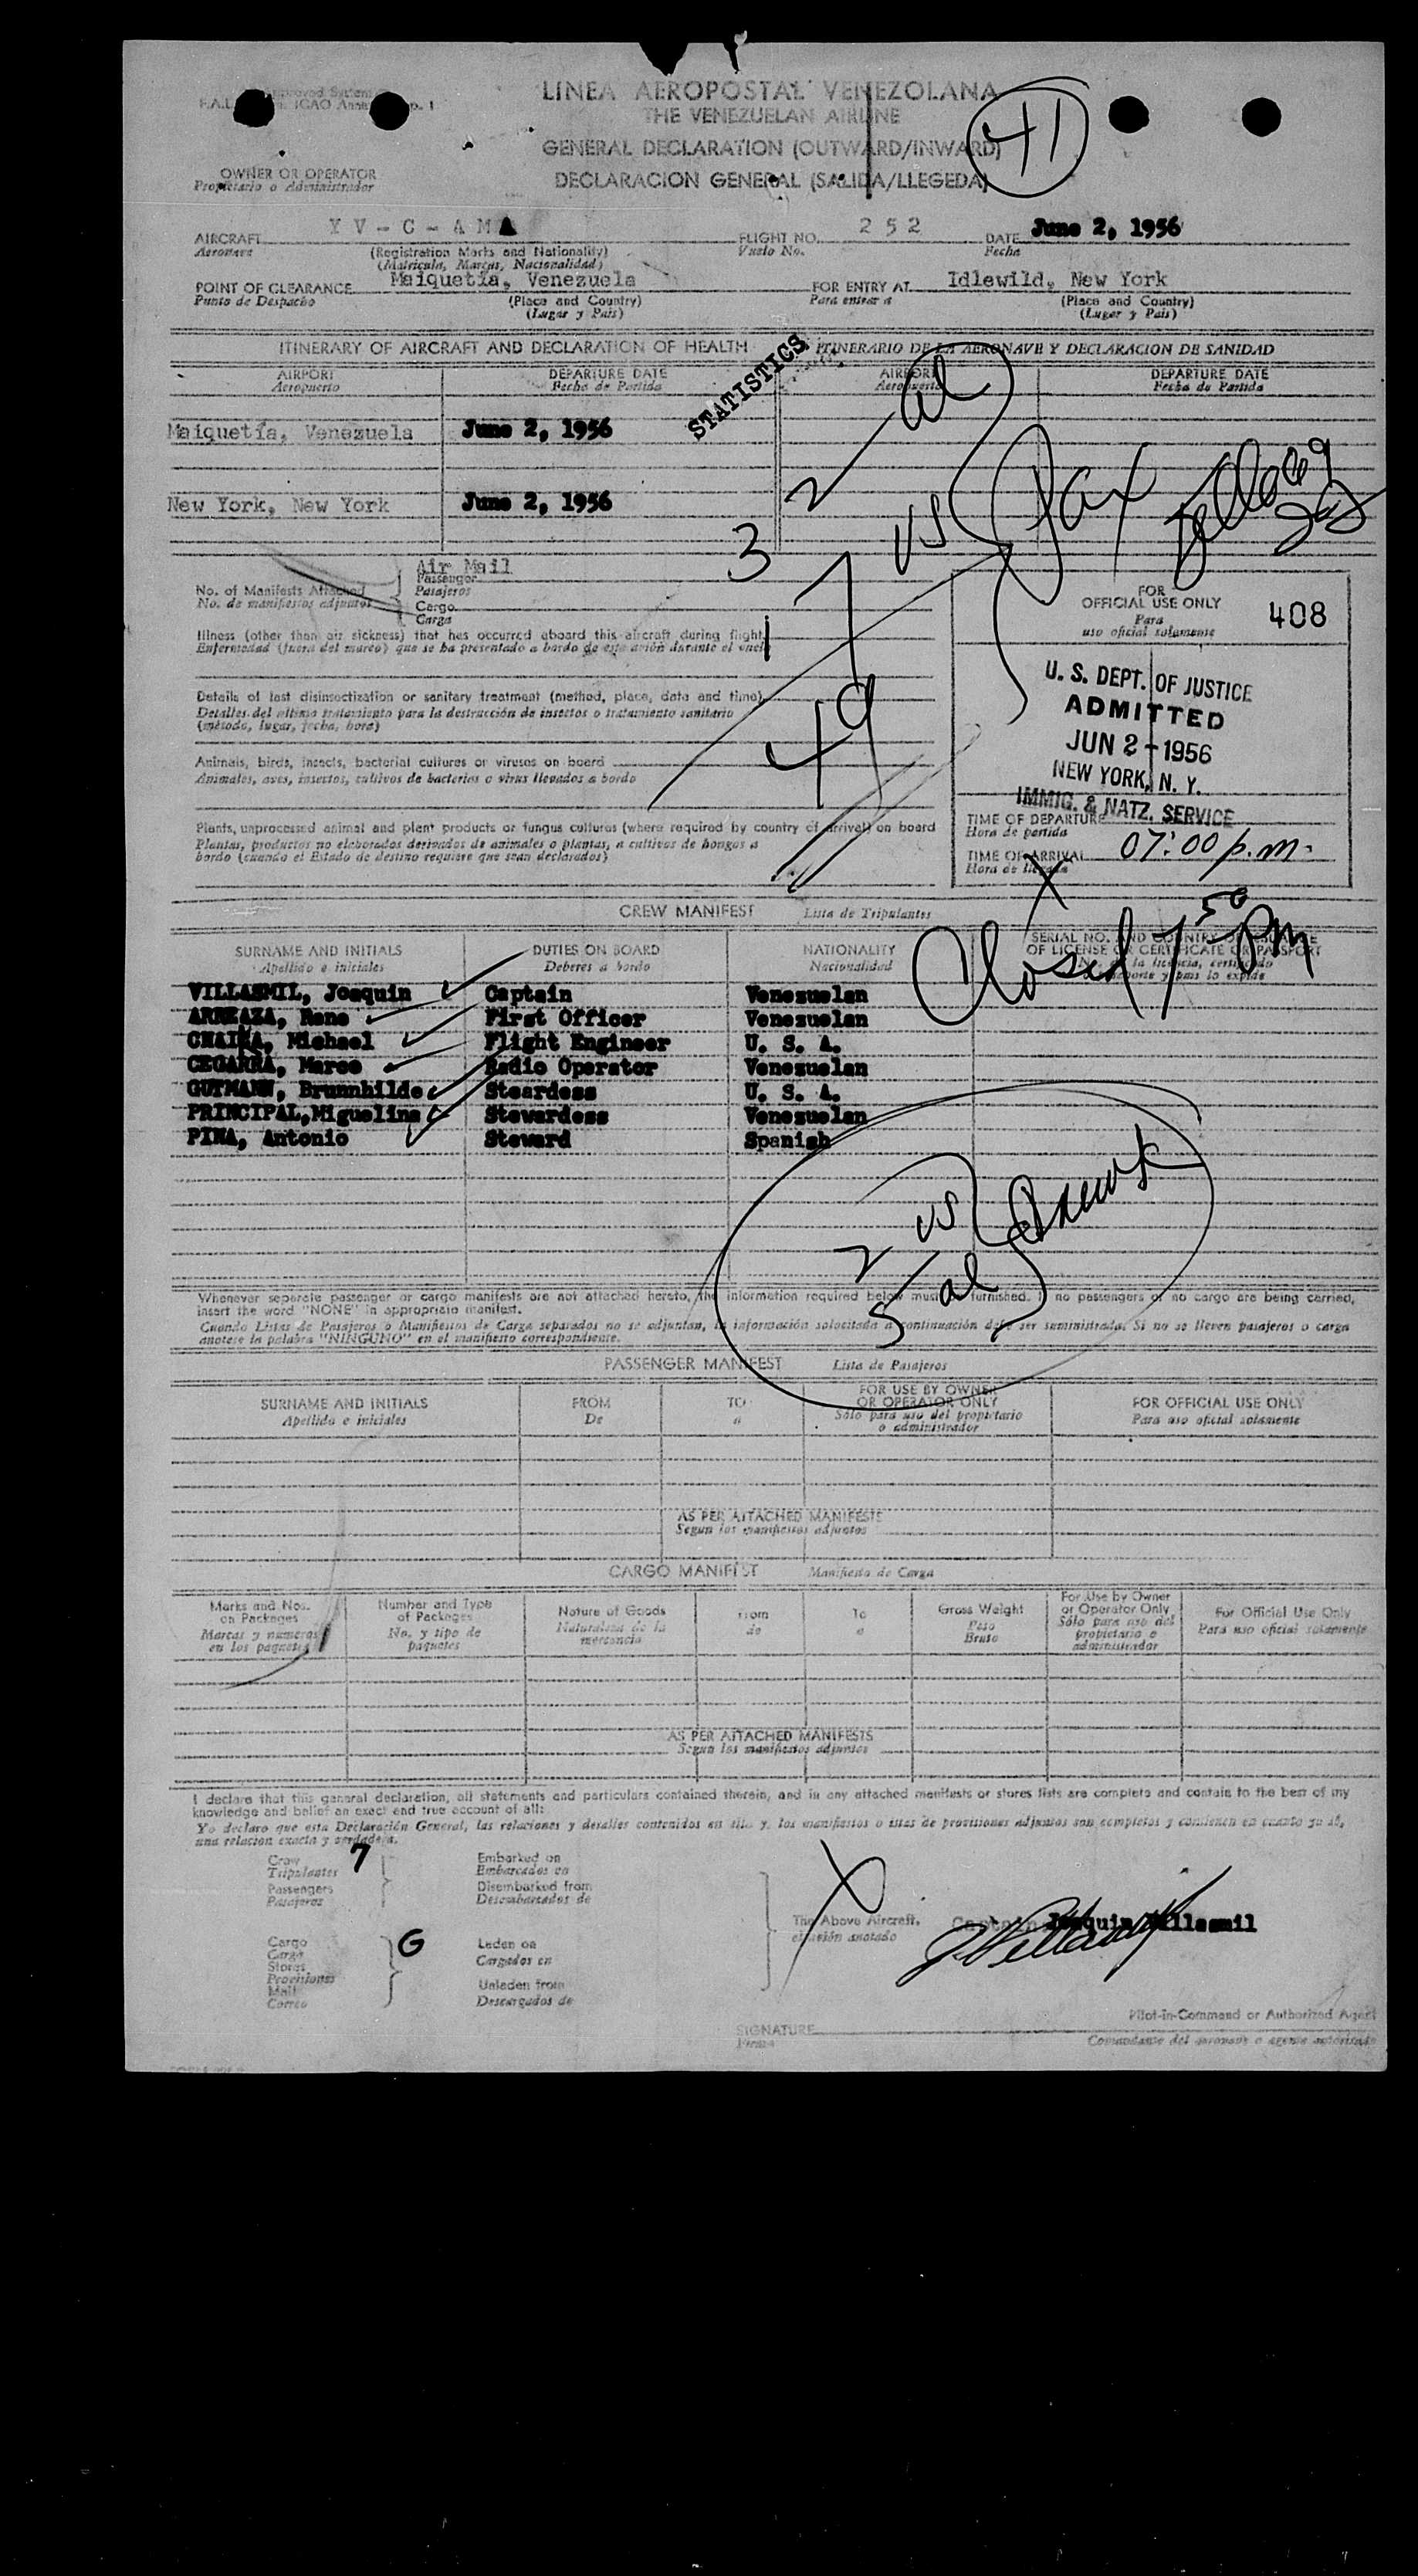 LINEA AEROPOSTAL VENEZOLANA
THE VENEZUELAN AIRLINE
GENERAL DECLARATION (OUTWARD/INWARD)
DECLARACION GENERAL (SALIDA/LLEGEDA)
41
OWNER OR OPERATOR
Propietario o Administrador
AIRCRAFT YV-C-AMA FLIGHT NO. 252 DATE June 2, 1956
Aeronave (Registration Marks and Nationality) Vuelo No. Fecha
(Matricula, Marcas, Nacionalidad)
POINT OF CLEARANCE Maiquetía, Venezuela FOR ENTRY AT Idlewild, New York
Punto de Despacho (Place and Country) Para entrar a (Place and Country)
(Lugar y Pais) (Lugar y Pais)
ITINERARY OF AIRCRAFT AND DECLARATION OF HEALTH ITINERARIO DE LA AERONAVE Y DECLARACION DE SANIDAD
STATISTICS
AIRPORT DEPARTURE DATE AIRPORT DEPARTURE DATE
Aeropuerto Fecha de Partida Aeropuerto Fecha de Partida
Maiquetía, Venezuela June 2, 1956
New York, New York June 2, 1956
32 al
17 us
Pax
49
Air Mail
No. of Manifests Attached Passenger
No. de manifiestos adjuntos Pasajeros
Cargo
Carga
Illness (other than air sickness) that has occurred aboard this aircraft during flight
Enfermedad (fuera del mareo) que se ha presentado a bordo de este avión durante el vuelo
Details of last disinsectization or sanitary treatment (method, place, date and time)
Detalles del ultimo tratamiento para la destrucción de insectos o tratamiento sanitario
(método, lugar, fecha, hora)
Animals, birds, insects, bacterial cultures or viruses on board
Animales, aves, insectos, cultivos de bacterias o virus llevados a bordo
Plants, unprocessed animal and plant products or fungus cultures (where required by country of arrival) on board
Plantas, productos no elaborados derivados de animales o plantas, a cultivos de hongos a
bordo (cuando el Estado de destino requiere que sean declarados)
FOR
OFFICIAL USE ONLY 408
Para
uso oficial solamente
U. S. DEPT. OF JUSTICE
ADMITTED
JUN 2 - 1956
NEW YORK, N. Y.
IMMIG. & NATZ. SERVICE
TIME OF DEPARTURE
Hora de partida
TIME OF ARRIVAL 07:00 p.m.
Hora de llegada
Closed 7 50 pm
CREW MANIFEST Lista de Tripulantes
SURNAME AND INITIALS DUTIES ON BOARD NATIONALITY
Apellido e iniciales Deberes a bordo Nacionalidad
VILLASMIL, Joaquin Captain Venezuelan
ARREAZA, Rene First Officer Venezuelan
CHAIKA, Michael Flight Engineer U. S. A.
CEGARRA, Marco Radio Operator Venezuelan
GUTMANN, Brunnhilde Steardess U. S. A.
PRINCIPAL, Miguelina Stewardess Venezuelan
PINA, Antonio Steward Spanish
2 us
5 al
Crew
Whenever separate passenger or cargo manifests are not attached hereto, the information required below must be furnished. If no passengers or no cargo are being carried,
insert the word "NONE" in appropriate manifest.
Cuando Listas de Pasajeros o Manifiestos de Carga separados no se adjuntan, la información solocitada a continuación debe ser suministrada. Si no se lleven pasajeros o carga
anotese la palabra "NINGUNO" en el manifiesto correspondiente.
PASSENGER MANIFEST Lista de Pasajeros
SURNAME AND INITIALS FROM TO FOR USE BY OWNER OR OPERATOR ONLY FOR OFFICIAL USE ONLY
Apellido e iniciales De a Sólo para uso del propietario o administrador Para uso oficial solamente
AS PER ATTACHED MANIFESTS
Segun los manifiestos adjuntos
CARGO MANIFEST Manifiesto de Carga
Marks and Nos. on Packages Number and Type of Packages Nature of Goods From To Gross Weight For Use by Owner or Operator Only For Official Use Only
Marcas y numeros en los paquetes No. y tipo de paquetes Naturaleza de la mercancia de a Peso Bruto Sólo para uso del propietario o administrador Para uso oficial solamente
AS PER ATTACHED MANIFESTS
Segun los manifiestos adjuntos
I declare that this general declaration, all statements and particulars contained therein, and in any attached manifests or stores lists are complete and contain to the best of my
knowledge and belief an exact and true account of all:
Yo declaro que esta Declaración General, las relaciones y detalles contenidos en ella y, los manifiestos o listas de provisiones adjuntos son completos y contienen en cuanto yo sé,
una relacion exacta y verdadera.
Crew 7 Embarked on
Tripulantes Embarcados en
Passengers Disembarked from
Pasajeros Desembarcados de
The Above Aircraft, Captain Joaquin Villasmil
el avión anotado
Cargo G Laden on
Carga Cargados en
Stores
Provisiones Unladen from
Mail Descargados de
Correo
Pilot-in-Command or Authorized Agent
SIGNATURE
Firma Comandante del aeronave o agente autorizado